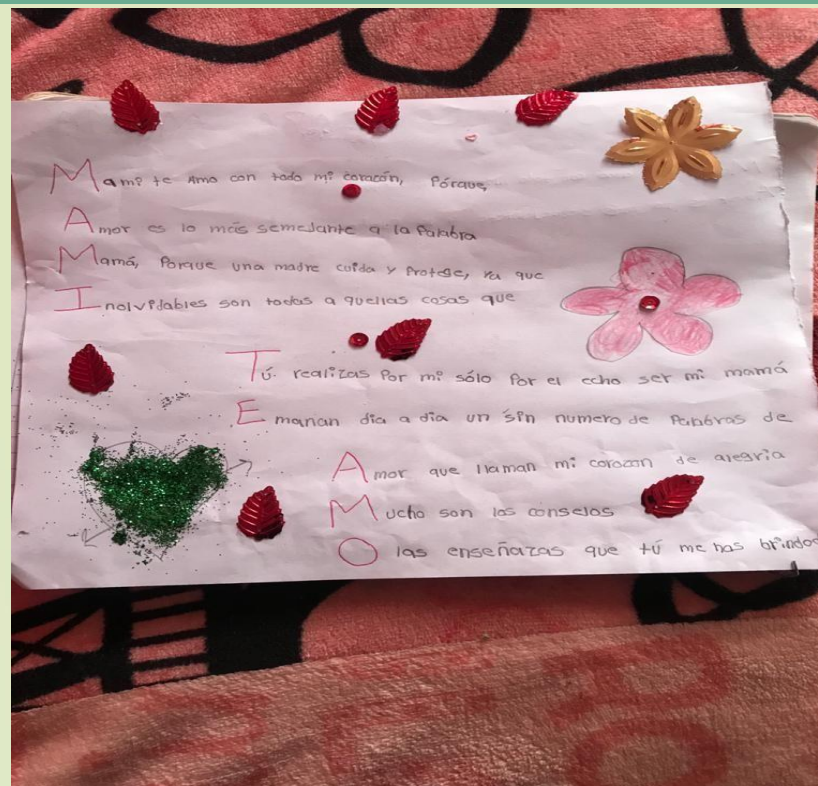 Mami te Amo con todo mi corazón, Pórque,
Amor es lo más semeJante a la Palabra
Mamá, Porque una madre cuida y Protege, ya que
Inolvidables son todas a quellas cosas que
Tú realizas Por mi sólo Por el echo ser mi mamá
Emanan dia a dia un sin numero de Palabras de
Amor que llaman mi corazon de alegria
Mucho son los conseJos
O las enseñazas que tú me has brindo